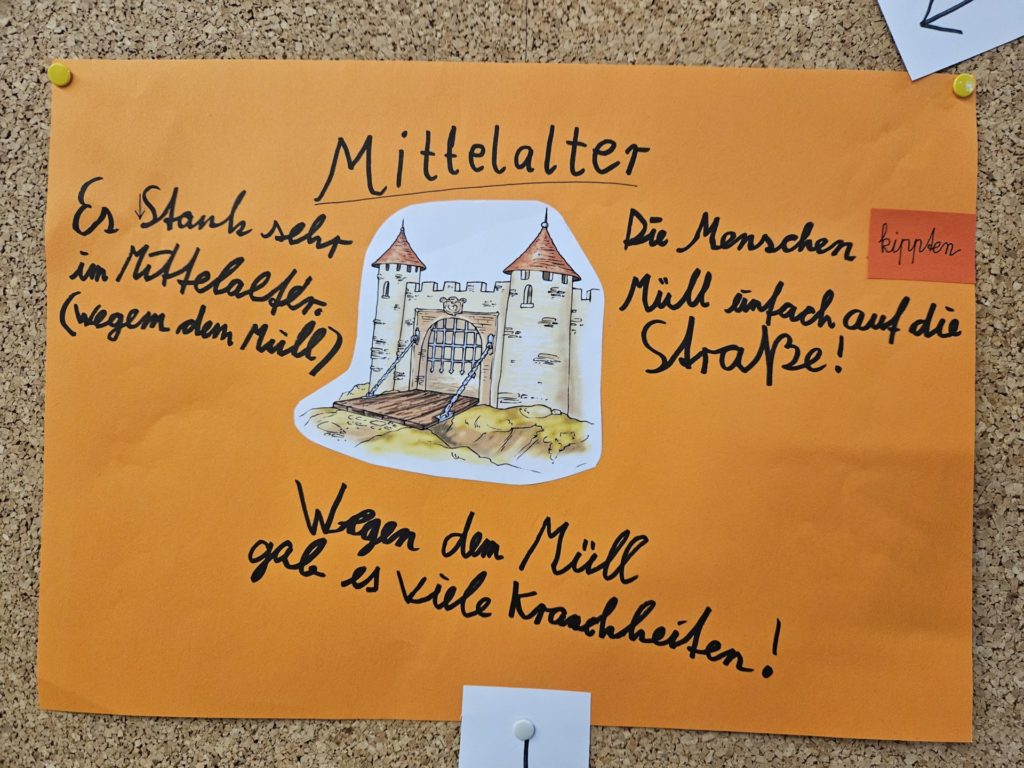 Mittelalter
Es Stank sehr
im Mittelalter.
(wegem dem Müll)
Die Menschen kippten
Müll einfach auf die
Straße!
Wegen dem Müll
gab es viele Kranchheiten!